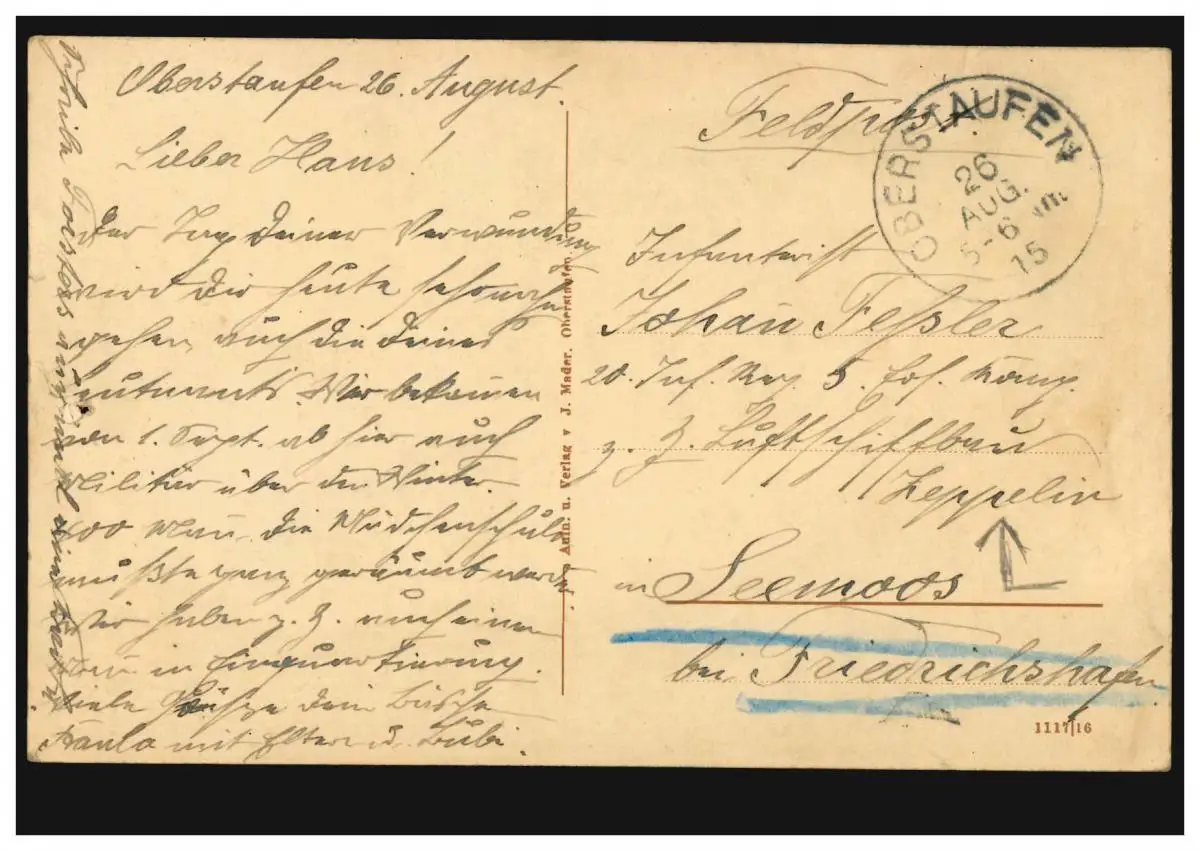 Oberstaufen 26. August.
Lieber Hans!
Der Tag Deiner Verwundung
wird dir heute
gehen, auch die Deines
Leutnants. Wir bekamen
von 1. Sept. ab hier auch
Militär über den Winter.
Mann, die Mädchenschule
mußte ganz geräumt werden
Wir haben z. Z. auch einen
Mann in Einquartierung.
Viele Grüße dein
mit Eltern u. Bubi.
Feldpost
OBERSTAUFEN
26
AUG.
5-6
15
Infanterist
Johan Feßler
20. Inf. Reg. 5. Komp.
z. Z. Luftschiffbau
Zeppelin
in Seemoos
bei Friedrichshafen
Aufn. u. Verlag v J. Mader, Oberstaufen
1117/16